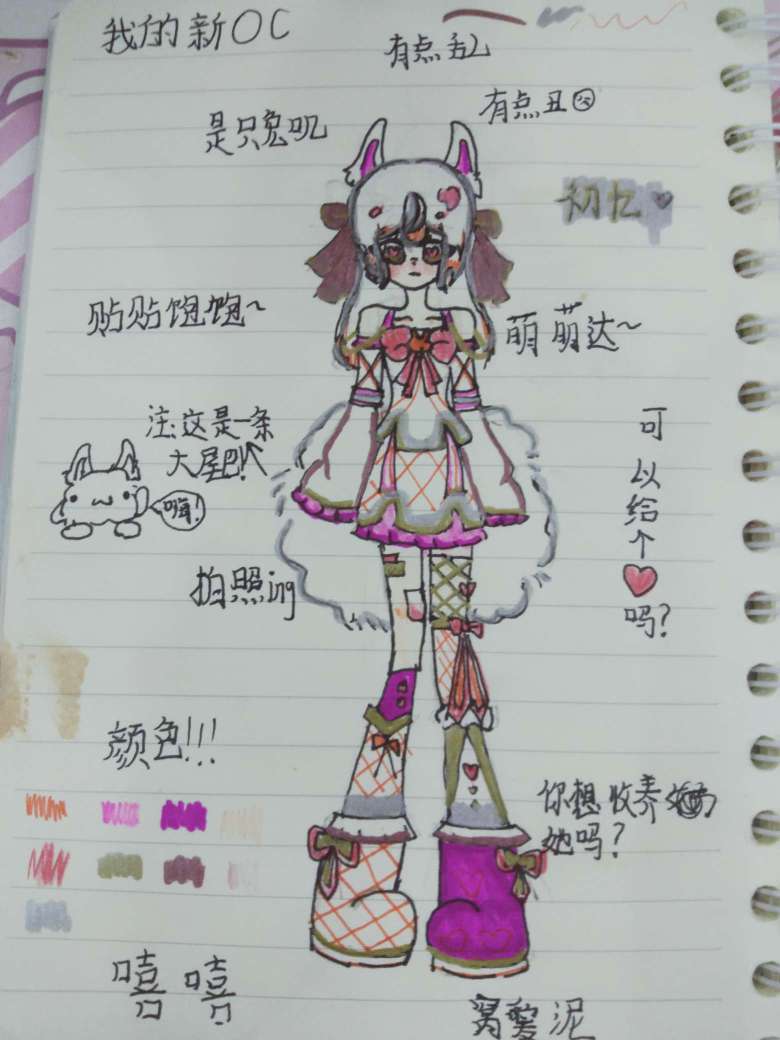 我的新OC
有点乱
有点丑
是只兔叽
初忆
贴贴饱饱~
萌萌达~
注:这是一条
大尾巴!
嗨!
可以给个❤吗?
拍照ing
颜色!!!
你想收养
她吗?
嘻嘻
窝爱泥